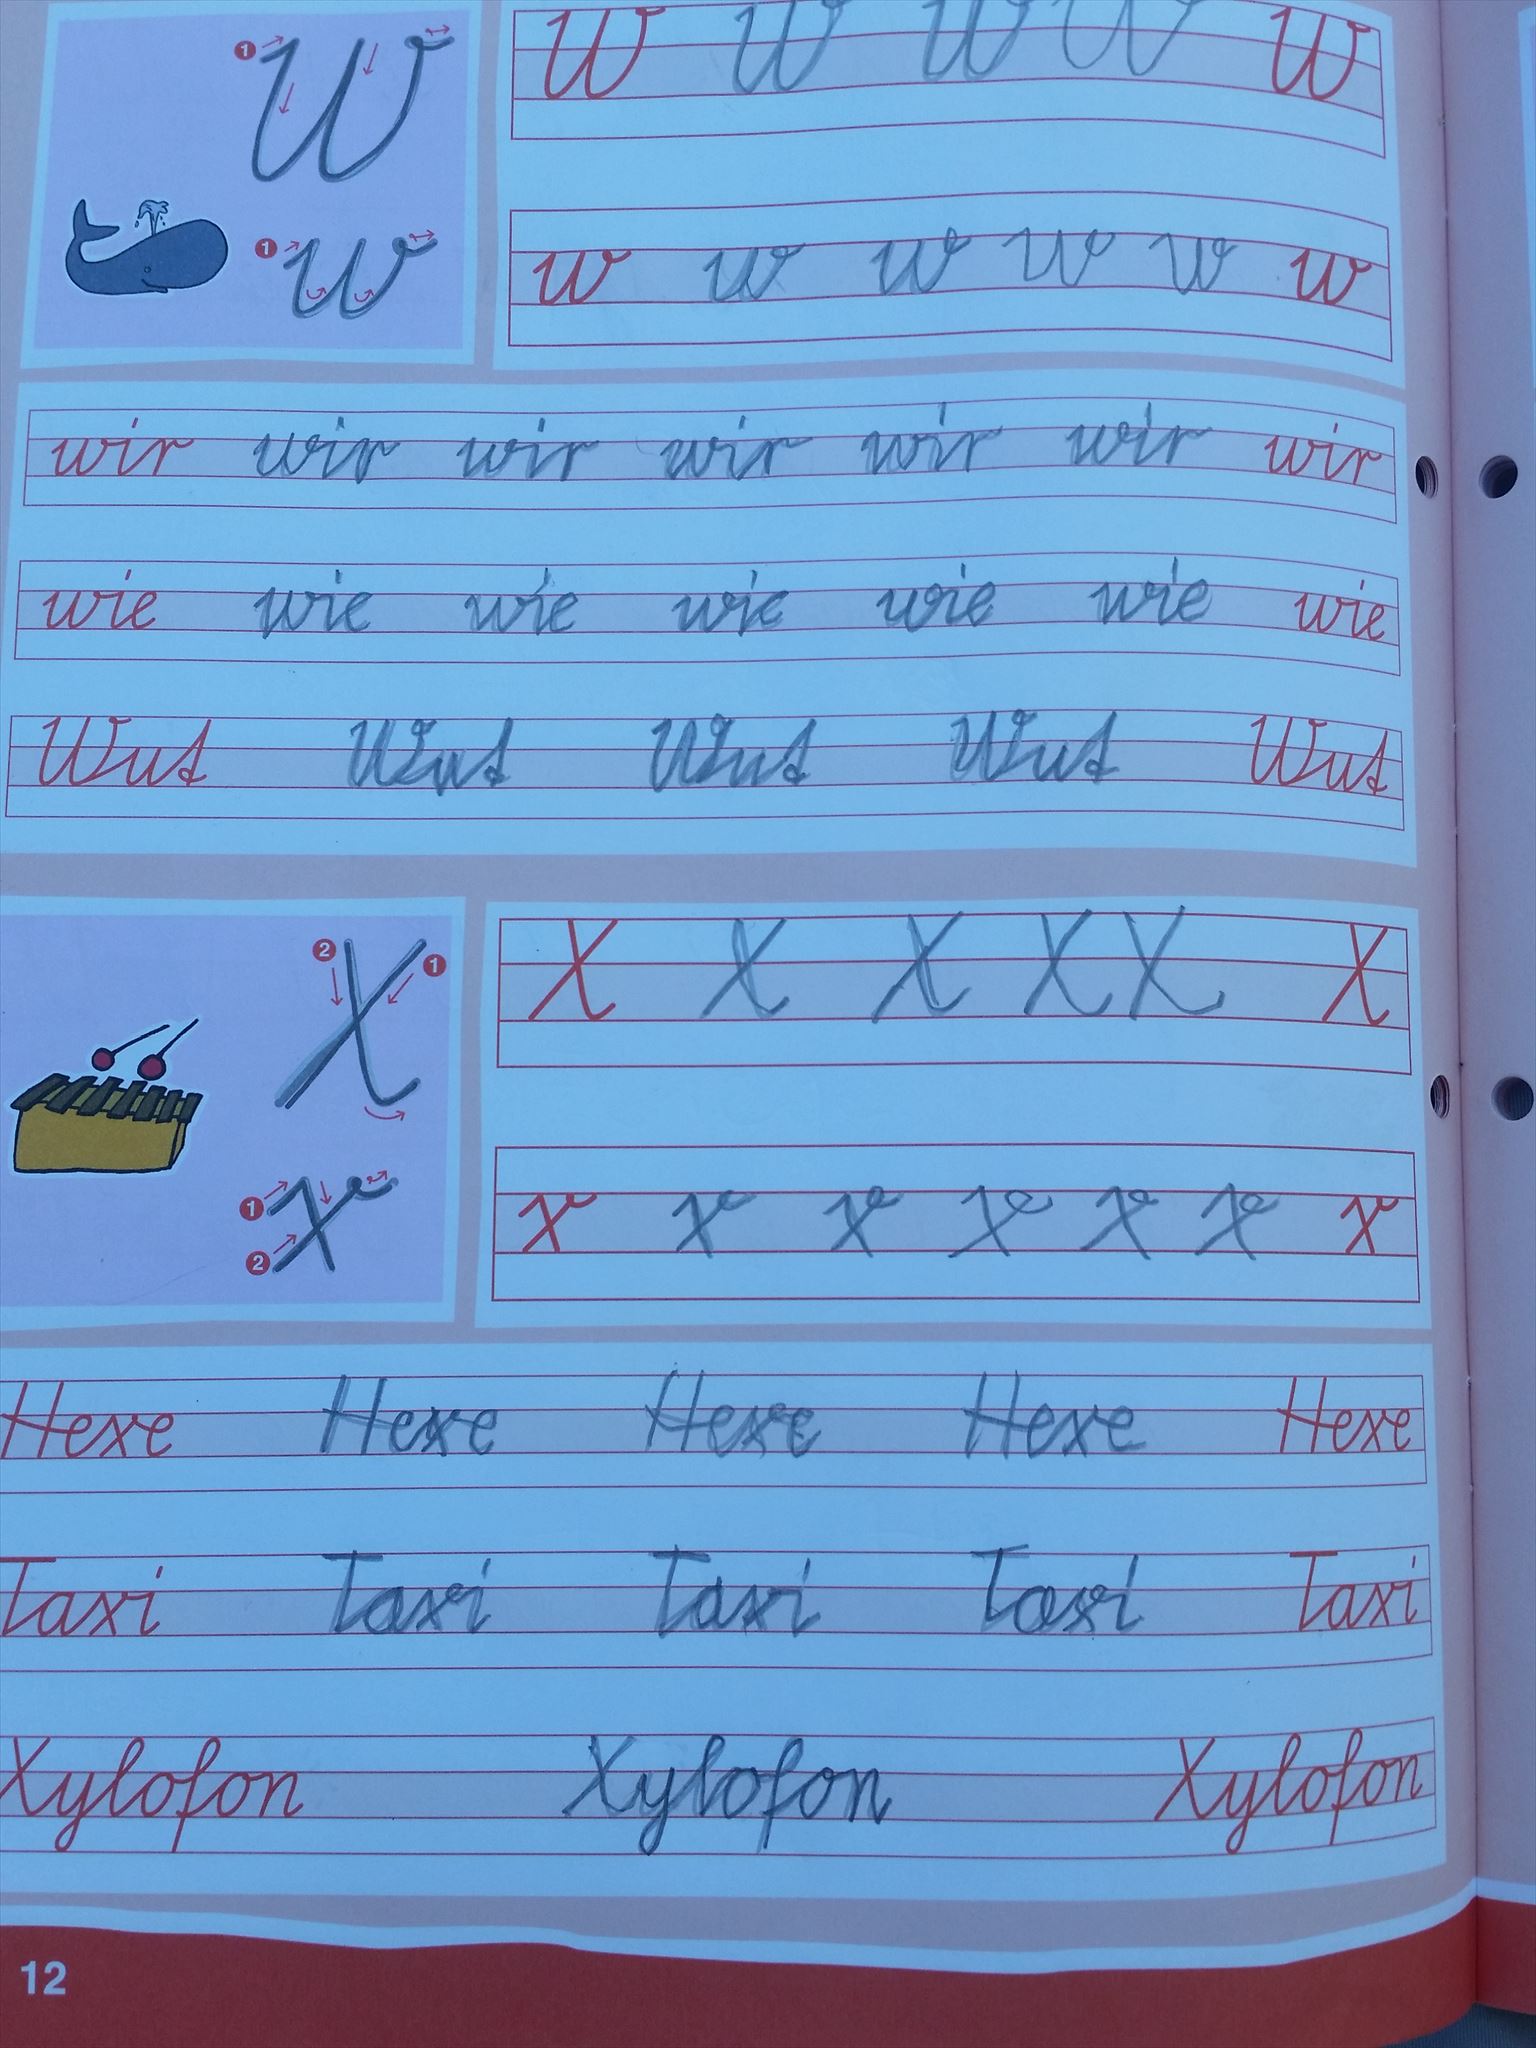 1 W W W W W W
1 w w w w w w w
wir wir wir wir wir wir wir
wie wie wie wie wie wie wie
Wut Wut Wut Wut Wut
2 X 1 X X X X X X
1 2 x x x x x x x x
Hexe Hexe Hexe Hexe Hexe
Taxi Taxi Taxi Taxi Taxi
Xylofon Xylofon Xylofon
12